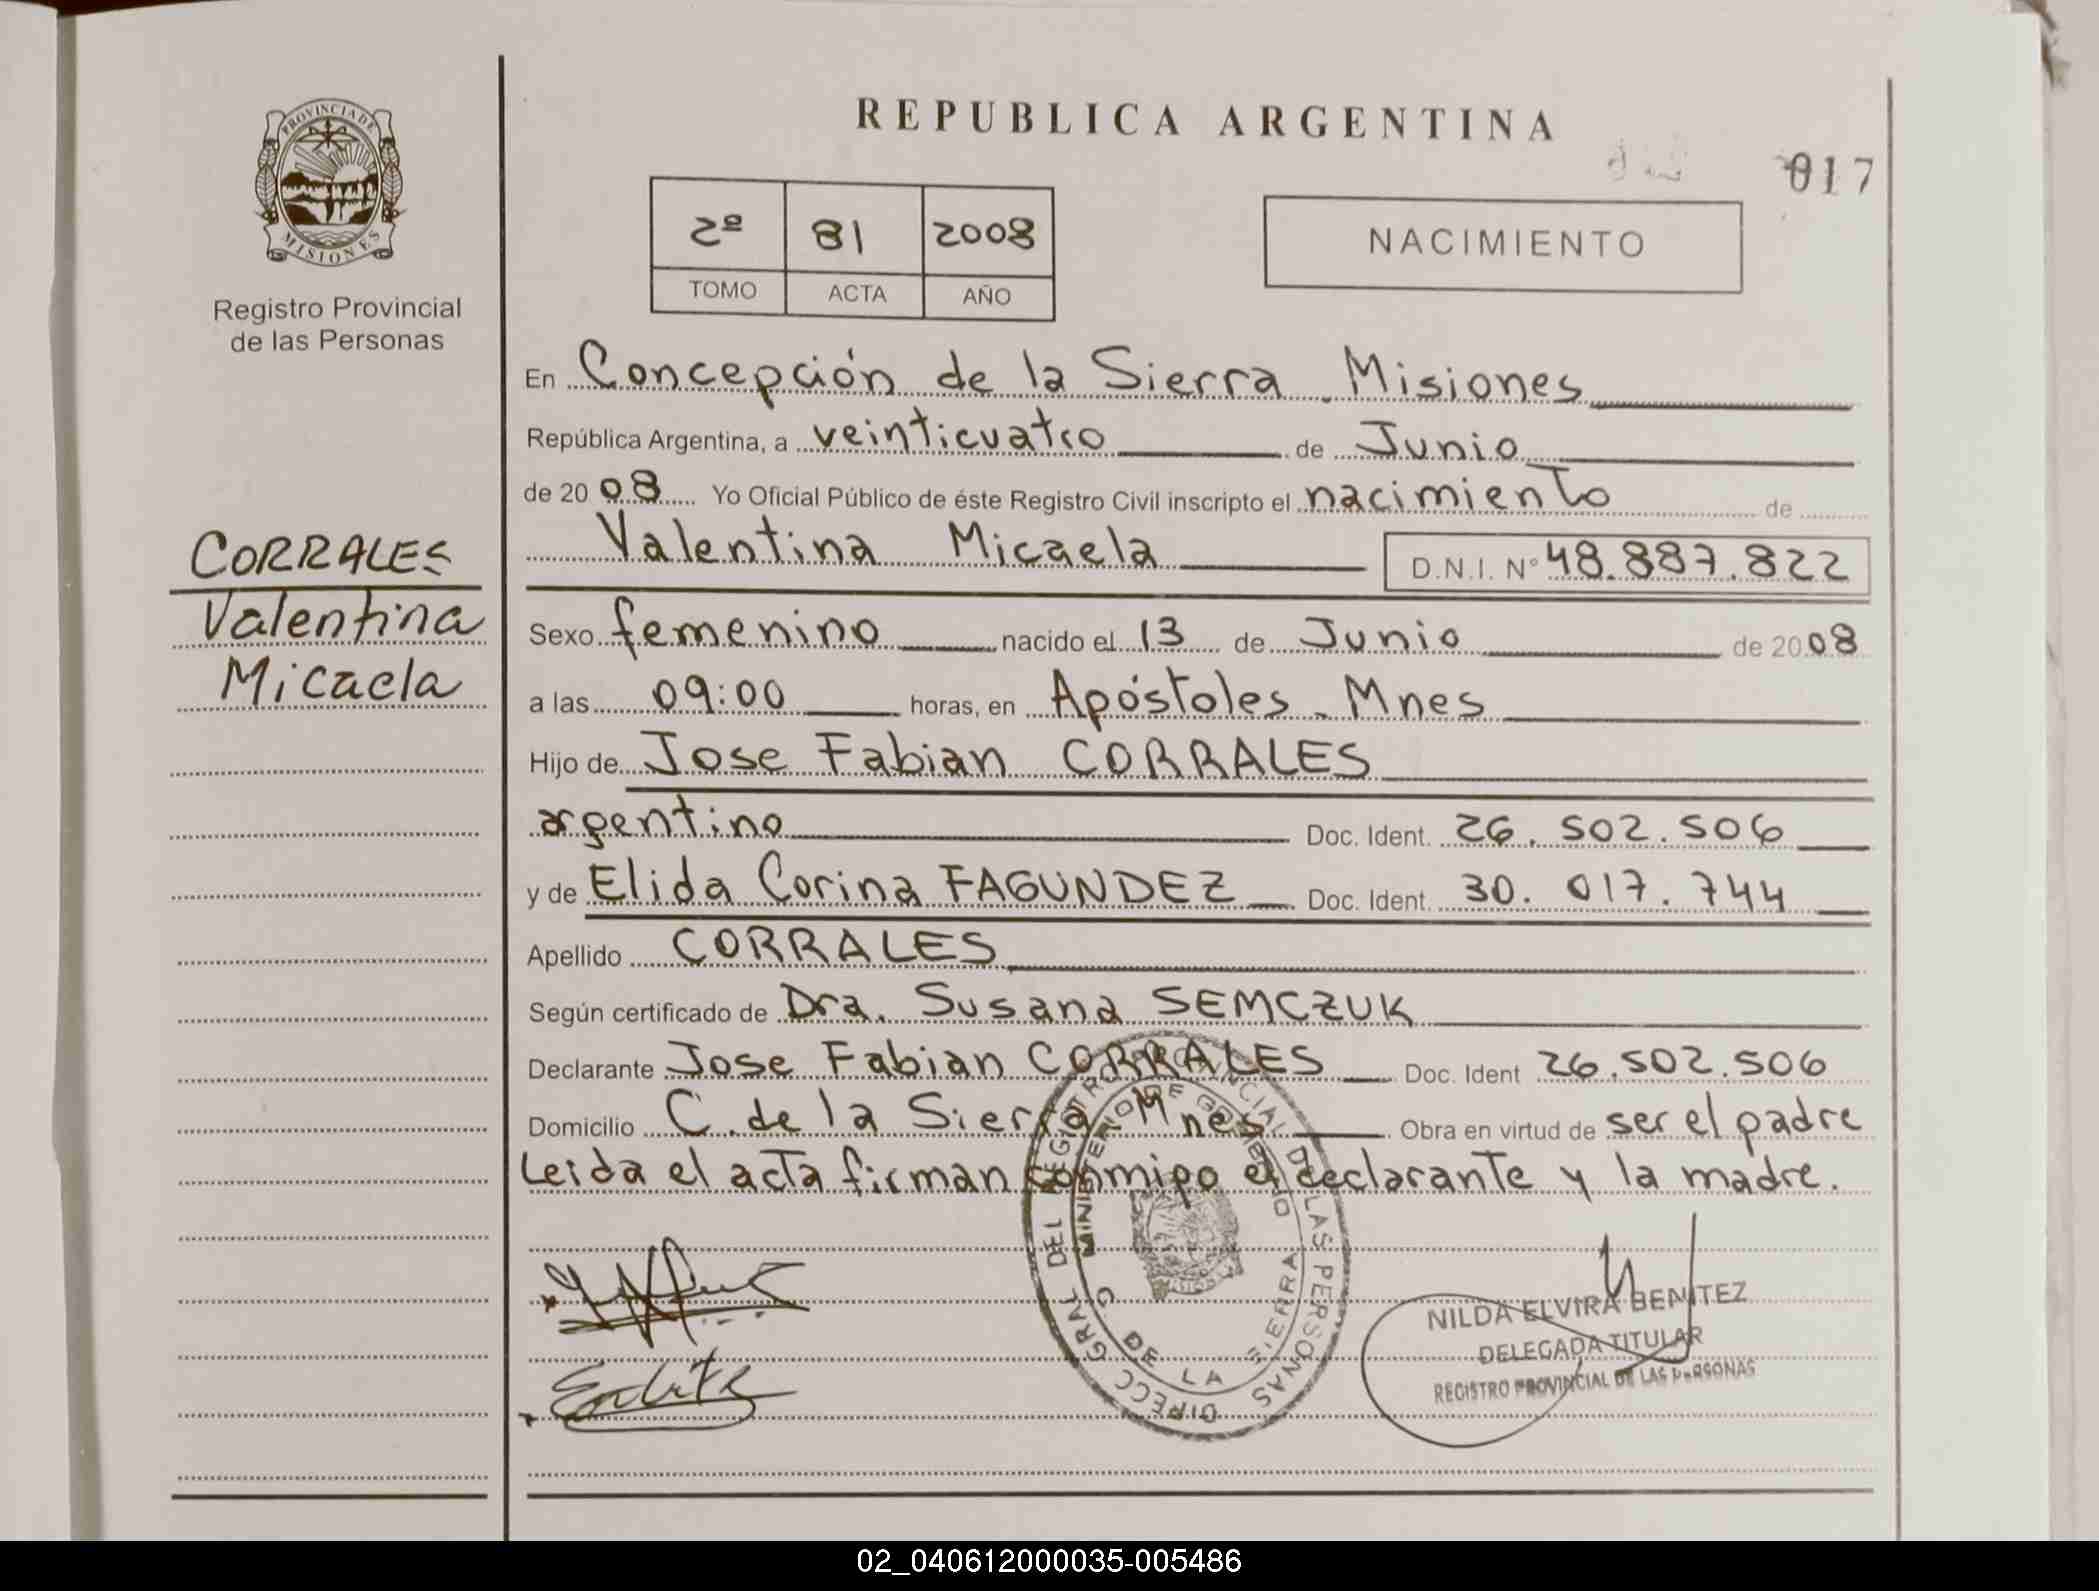 REPUBLICA ARGENTINA
017
PROVINCIA DE
MISIONES
Registro Provincial
de las Personas
2º 81 2008
TOMO ACTA AÑO
NACIMIENTO
En Concepción de la Sierra. Misiones
República Argentina, a veinticuatro de Junio
de 2008 Yo Oficial Público de éste Registro Civil inscripto el nacimiento de
Valentina Micaela D.N.I. Nº 48.887.822
CORRALES
Valentina
Micaela
Sexo femenino nacido el 13 de Junio de 2008
a las 09:00 horas, en Apóstoles - Mnes
Hijo de Jose Fabian CORRALES
argentino Doc. Ident. 26.502.506
y de Elida Corina FAGUNDEZ Doc. Ident. 30.017.744
Apellido CORRALES
Según certificado de Dra. Susana SEMCZUK
Declarante Jose Fabian CORRALES Doc. Ident 26.502.506
Domicilio C. de la Sierra - Mnes Obra en virtud de ser el padre
Leida el acta firman conmigo el declarante y la madre.
DIRECC GRAL DEL REGISTRO PROVINCIAL DE LAS PERSONAS
MINISTERIO DE GOBIERNO
C DE LA SIERRA
NILDA ELVIRA BENITEZ
DELEGADA TITULAR
REGISTRO PROVINCIAL DE LAS PERSONAS
02_040612000035-005486